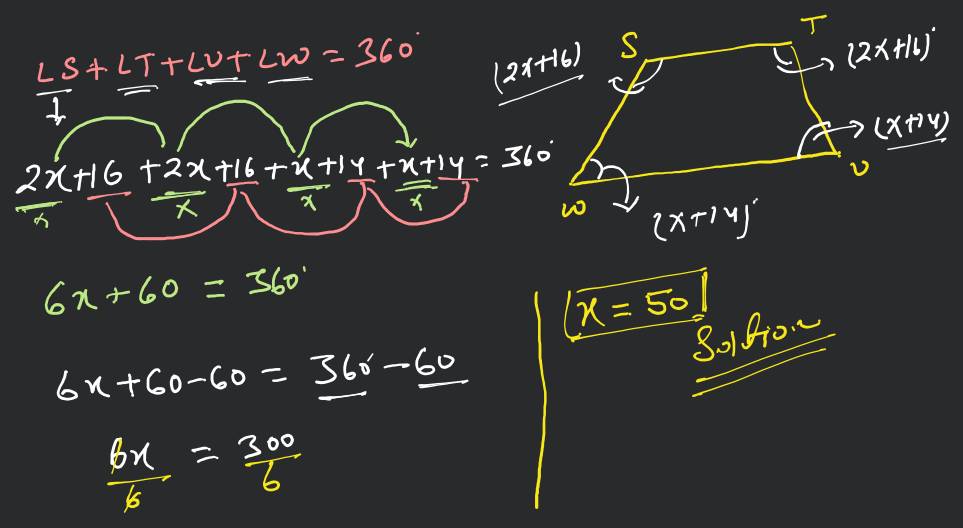 LS + LT + LU + LW = 360°
2x+16 + 2x+16 + x+14 + x+14 = 360°
x x x x
6x + 60 = 360°
6x + 60 - 60 = 360° - 60
6x/6 = 300/6
S
T
(2x+16)
(2x+16)°
(x+14)
U
W
(x+14)°
x = 50
Solution